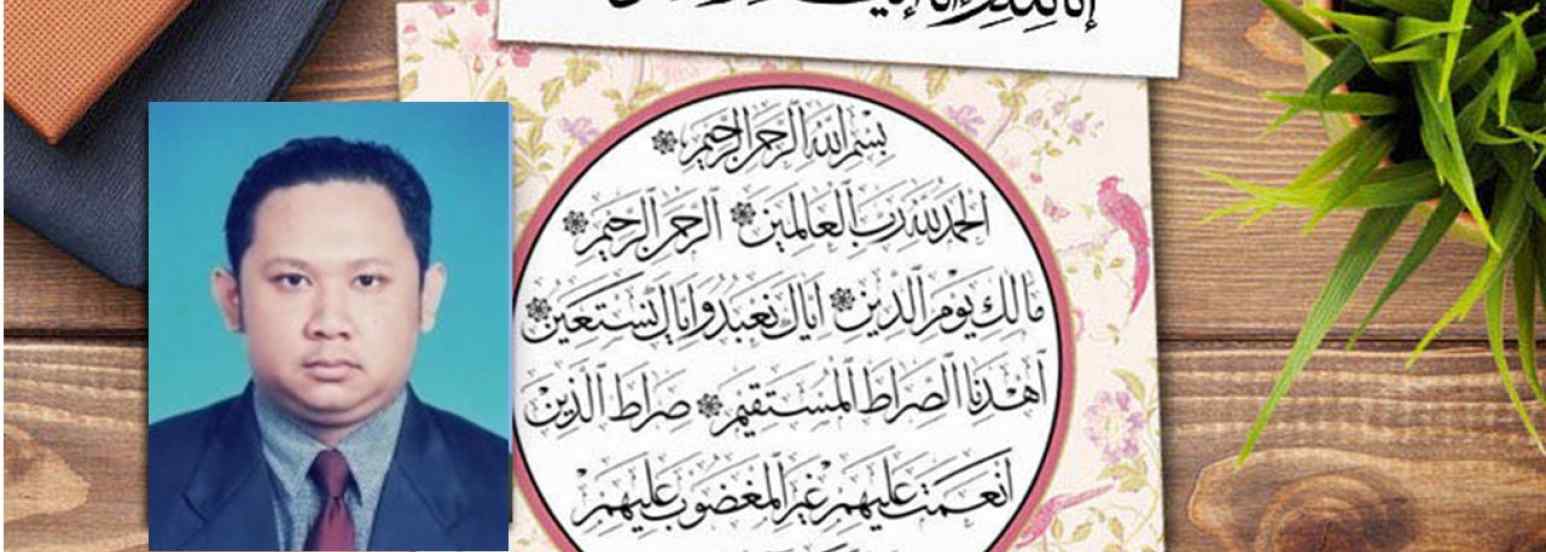 إنا لله وإنا إليه
بِسْمِ اللَّهِ الرَّحْمَٰنِ الرَّحِيمِ
الْحَمْدُ لِلَّهِ رَبِّ الْعَالَمِينَ الرَّحْمَٰنِ الرَّحِيمِ
مَالِكِ يَوْمِ الدِّينِ إِيَّاكَ نَعْبُدُ وَإِيَّاكَ نَسْتَعِينُ
اهْدِنَا الصِّرَاطَ الْمُسْتَقِيمَ صِرَاطَ الَّذِينَ
أَنْعَمْتَ عَلَيْهِمْ غَيْرِ الْمَغْضُوبِ عَلَيْهِمْ